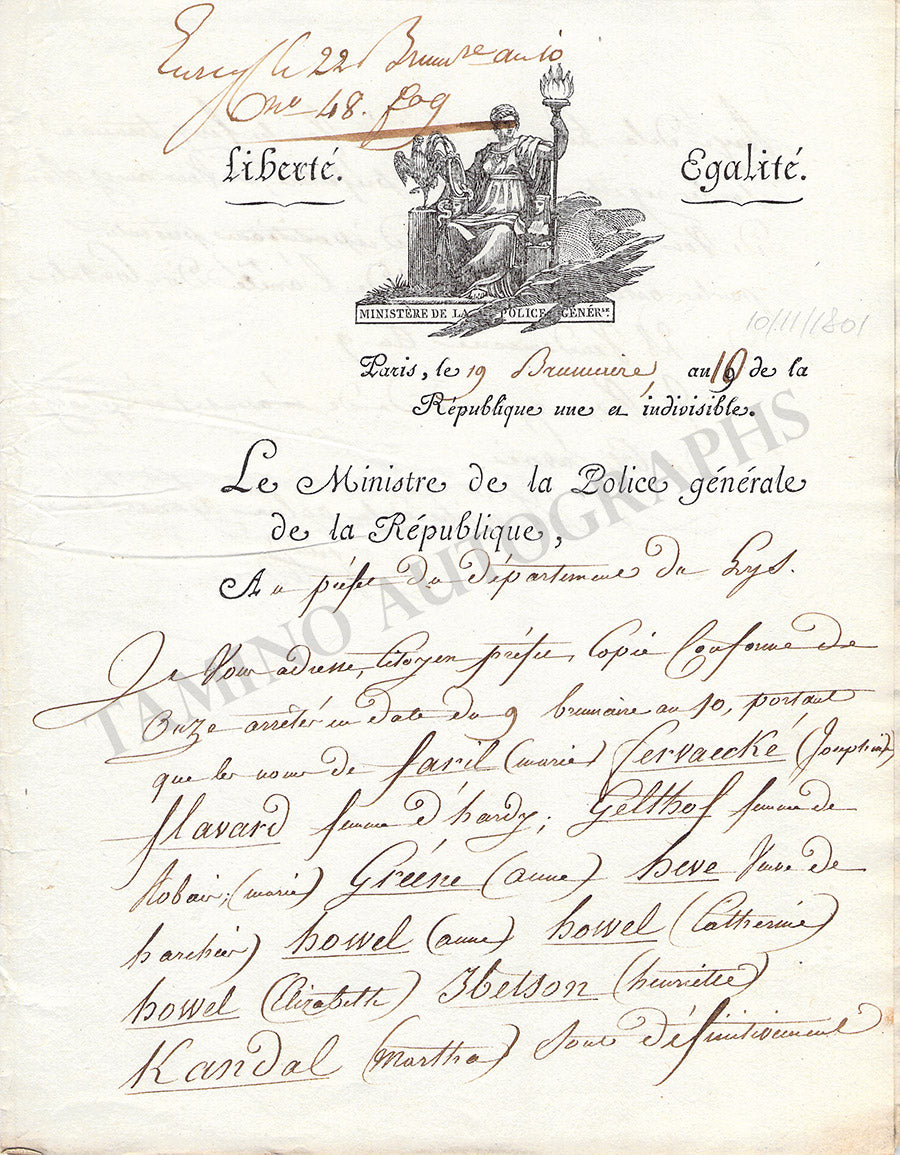 le 22 Brum.re an 10
no 48.
Liberté. Egalité.
MINISTÈRE DE LA POLICE GÉNÉR.LE
10/11/1801
Paris, le 19 Brumaire an 10 de la
République une et indivisible.
Le Ministre de la Police générale
de la République,
Au préfet du département du Lys.
Je vous adresse, Citoyen préfet, Copie Conforme de
Onze arrêtés en date du 9 brumaire an 10, portant
que les noms de Saril (marie) Cervaecké (Josephine)
flavard femme d'hardy; Gelthof femme de
Robair; (marie) Gréene (anne) heve Veuve de
harchier) howel (anne) howel (Catherine)
howel (Elizabeth) Ibetson (henriette)
Kandal (martha) sont définitivement
TAMINO AUTOGRAPHS